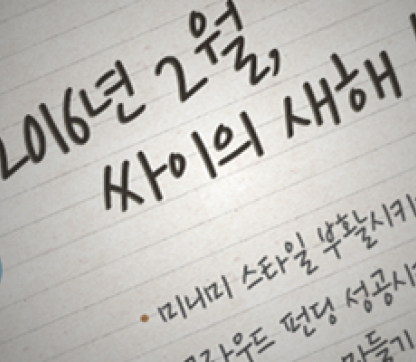 2016년 2월,
싸이의 새해
• 미니미 스타일 부활시키
크라우드 펀딩 성공시
만들기